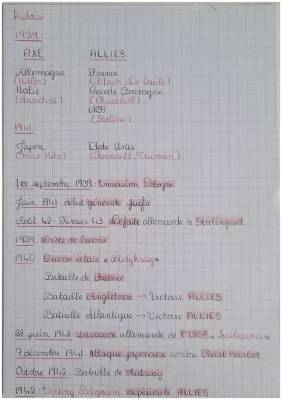 Histoire
1939:
AXE ALLIES
Allemagne France
(Hitler) (Pétain, De Gaulle)
Italie Grande Bretagne
(Mussolini) (Churchill)
URSS
(Staline)
1941:
Japon Etats Unis
(Hiro Hito) (Roosevelt, Truman)
1er septembre 1939: Invasion Pologne
Juin 1941 début génocide juifs
Août 42- Février 43 Défaite allemande à Stalingrad
1939 Drôle de Guerre
1940 Guerre éclair = Blitzkrieg
Bataille de France
Bataille Angleterre → Victoire ALLIES
Bataille Atlantique → Victoire ALLIES
22 juin 1941 invasion allemande de l'URSS = Barbarossa
7 décembre 1941 attaque japonaise contre Pearl Harbor
Octobre 1942: Bataille de Midway
1942: Victory Program ALLIES